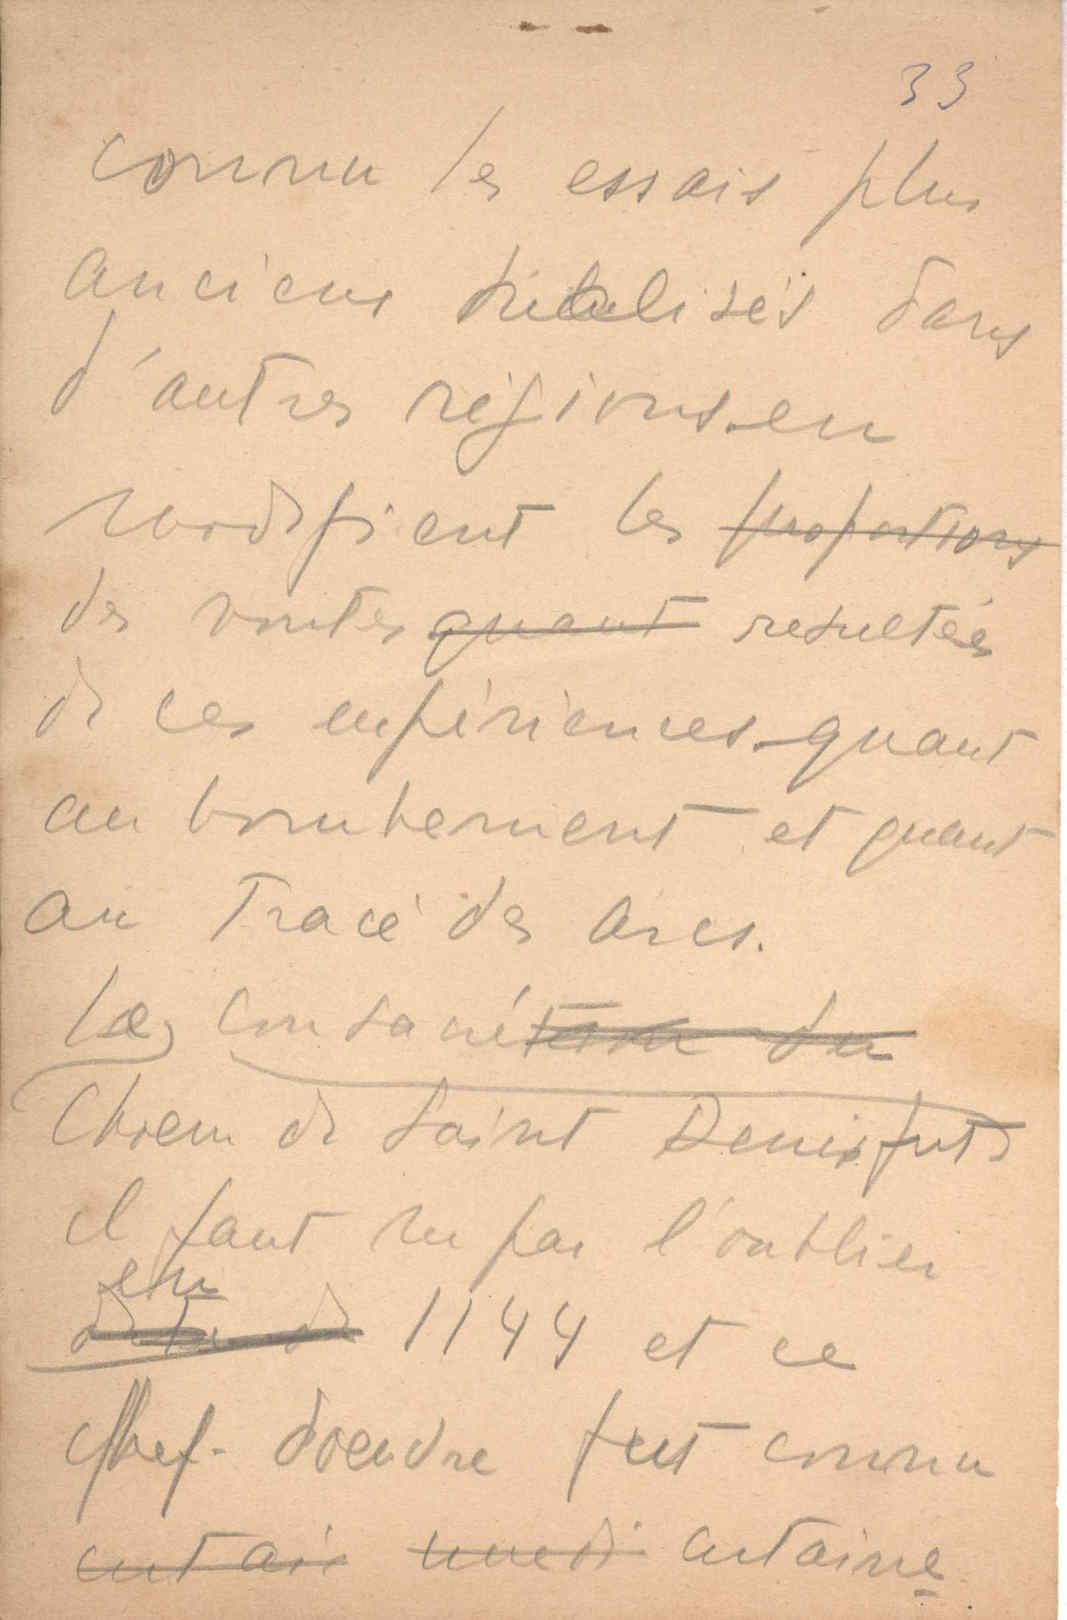 33
connu les essais plus
anciens réalisés dans
d'autres régions. en
modifient les proportions
des voutes quant resultées
de ces expériences. quant
au bombement et quant
au Tracé des arcs.
Le consacré du
Choeur de Saint Denis fut
il faut ne pas l'oublier
en
de 1144 et ce
chef-d'oeuvre fut connu
certaine